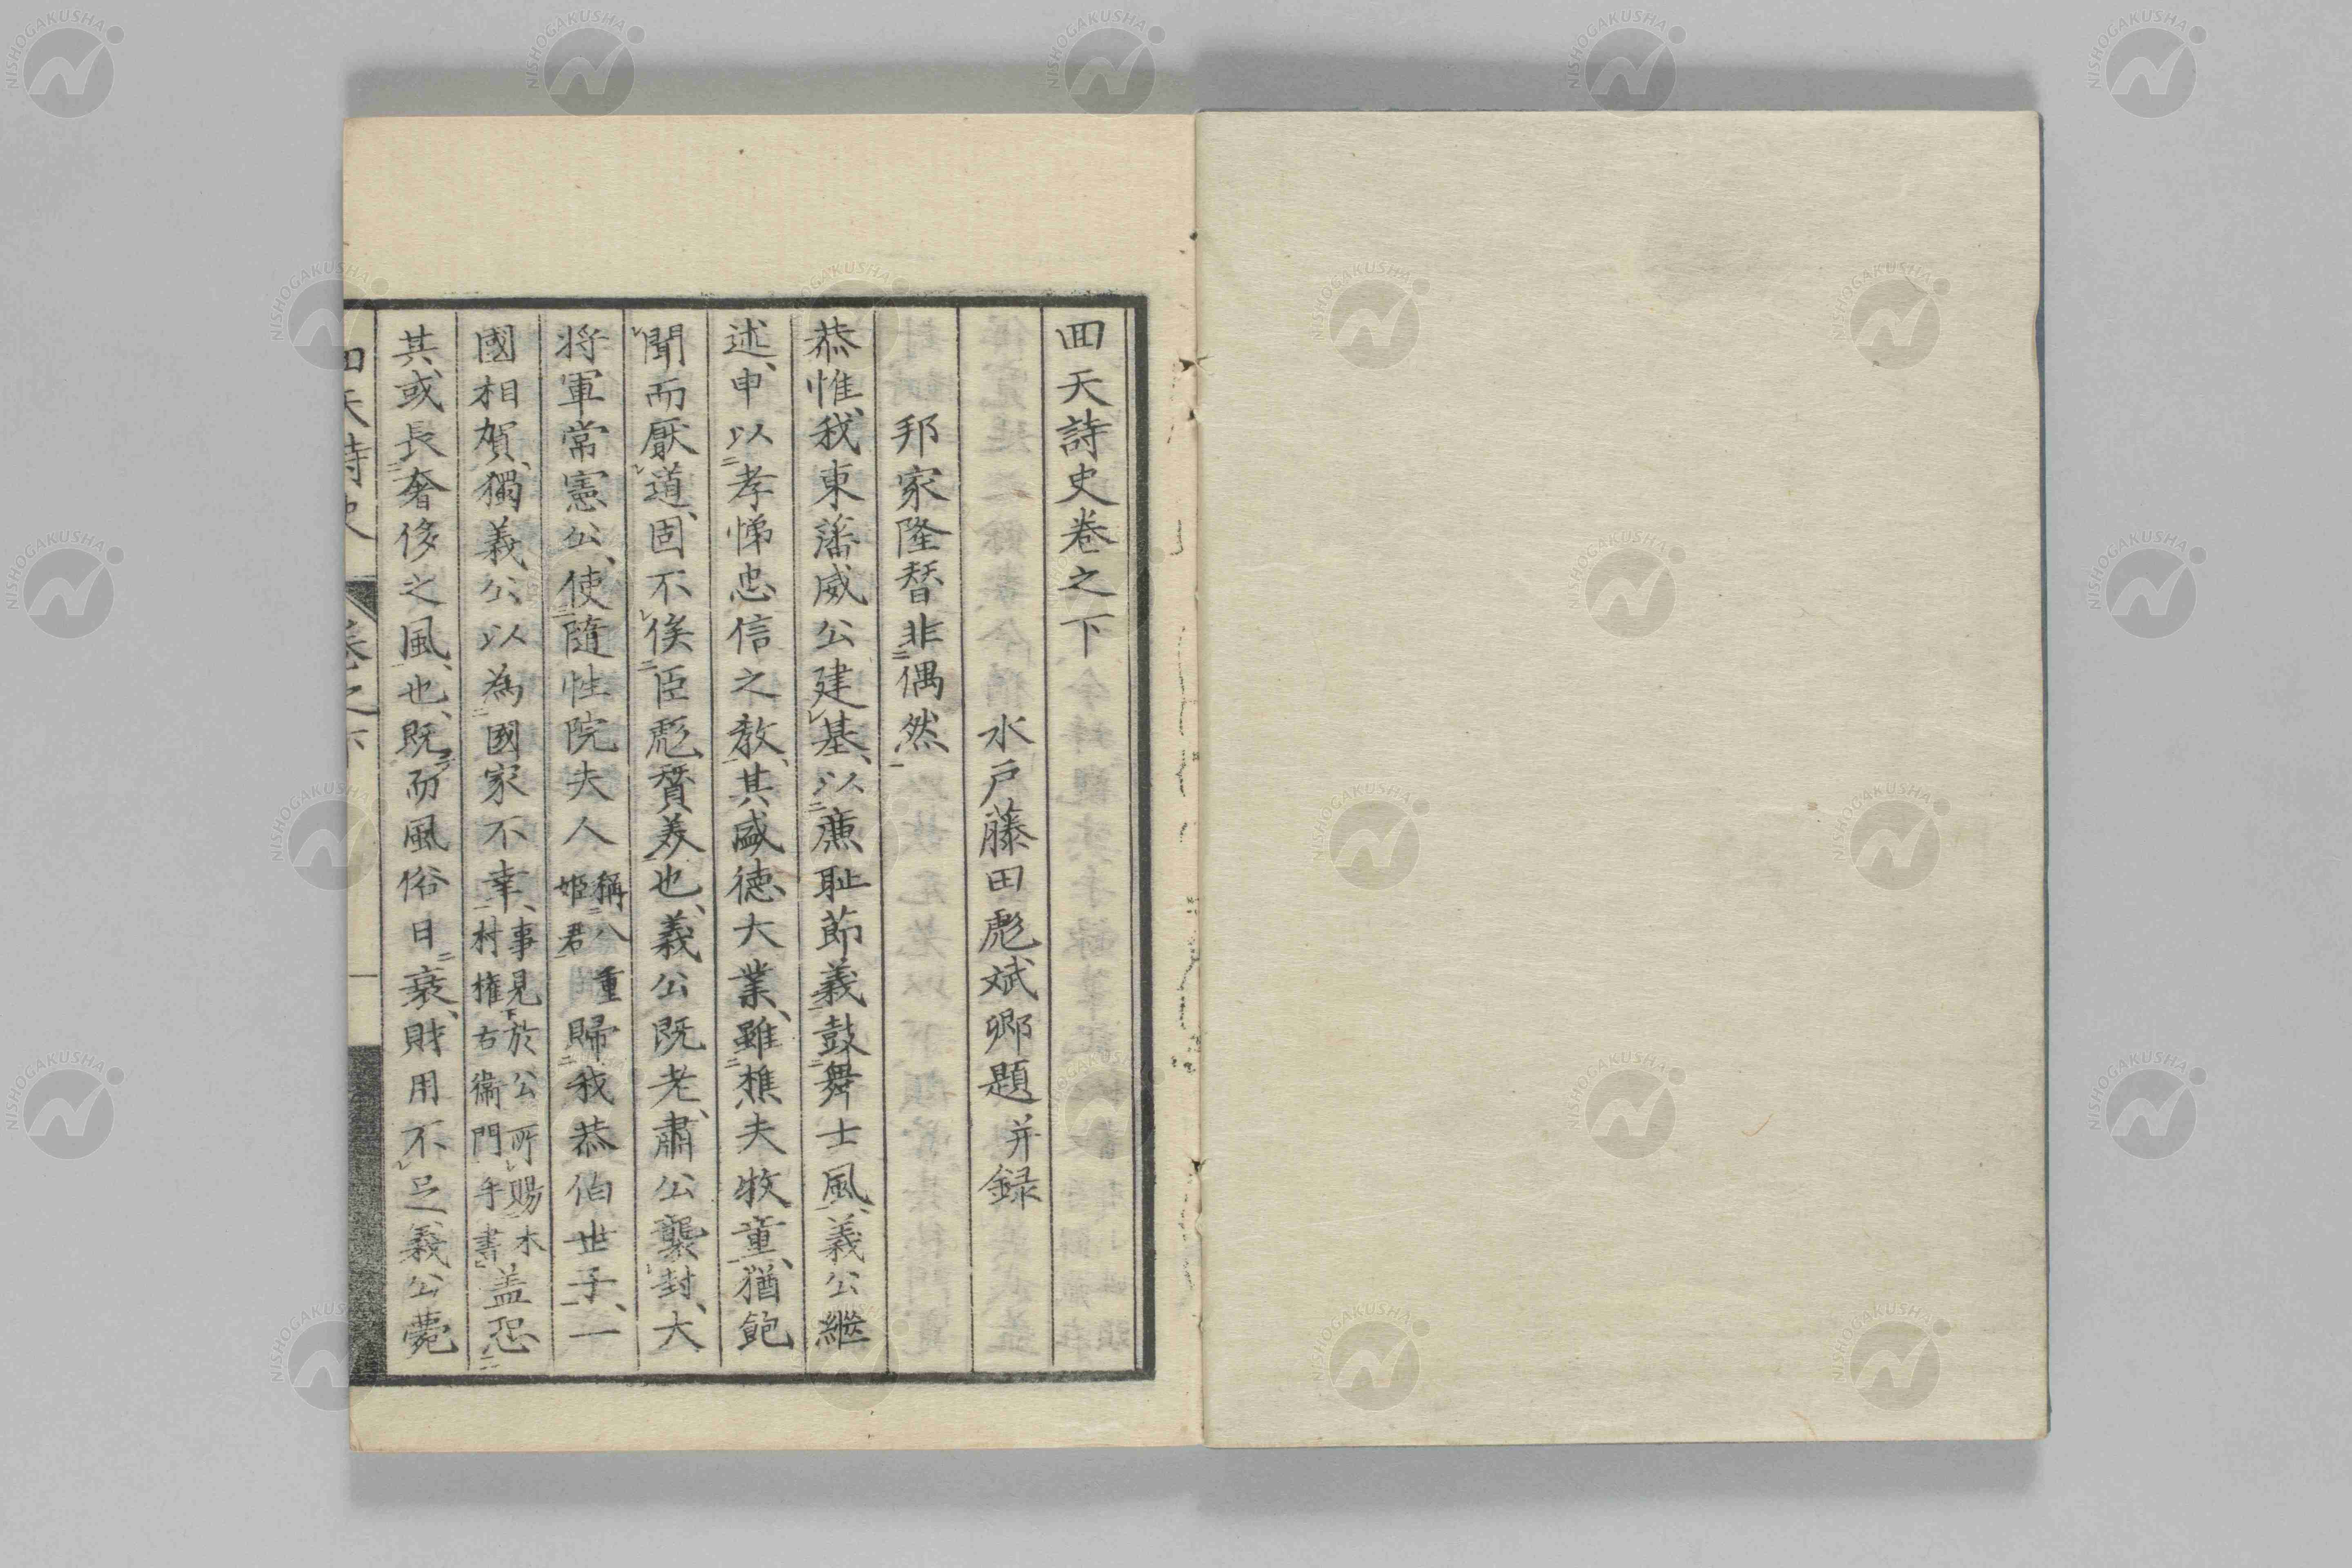 囬天詩史卷之下
水戸藤田彪斌卿題并録
邦家隆替非偶然
恭惟我東藩威公建基以廉耻節義鼓舞士風義公繼
述申以孝悌忠信之教其盛德大業雖樵夫牧童猶飽
聞而厭道固不俟臣彪贊美也義公既老肅公襲封大
將軍常憲公使隨性院夫人稱八重姬君歸我恭伯世子一
國相賀獨義公以為國家不幸事見於公所賜木村權右衞門手書盖恐
其或長奢侈之風也既而風俗日衰財用不足義公薨
囬天詩史 卷之下
NISHOGAKUSHA